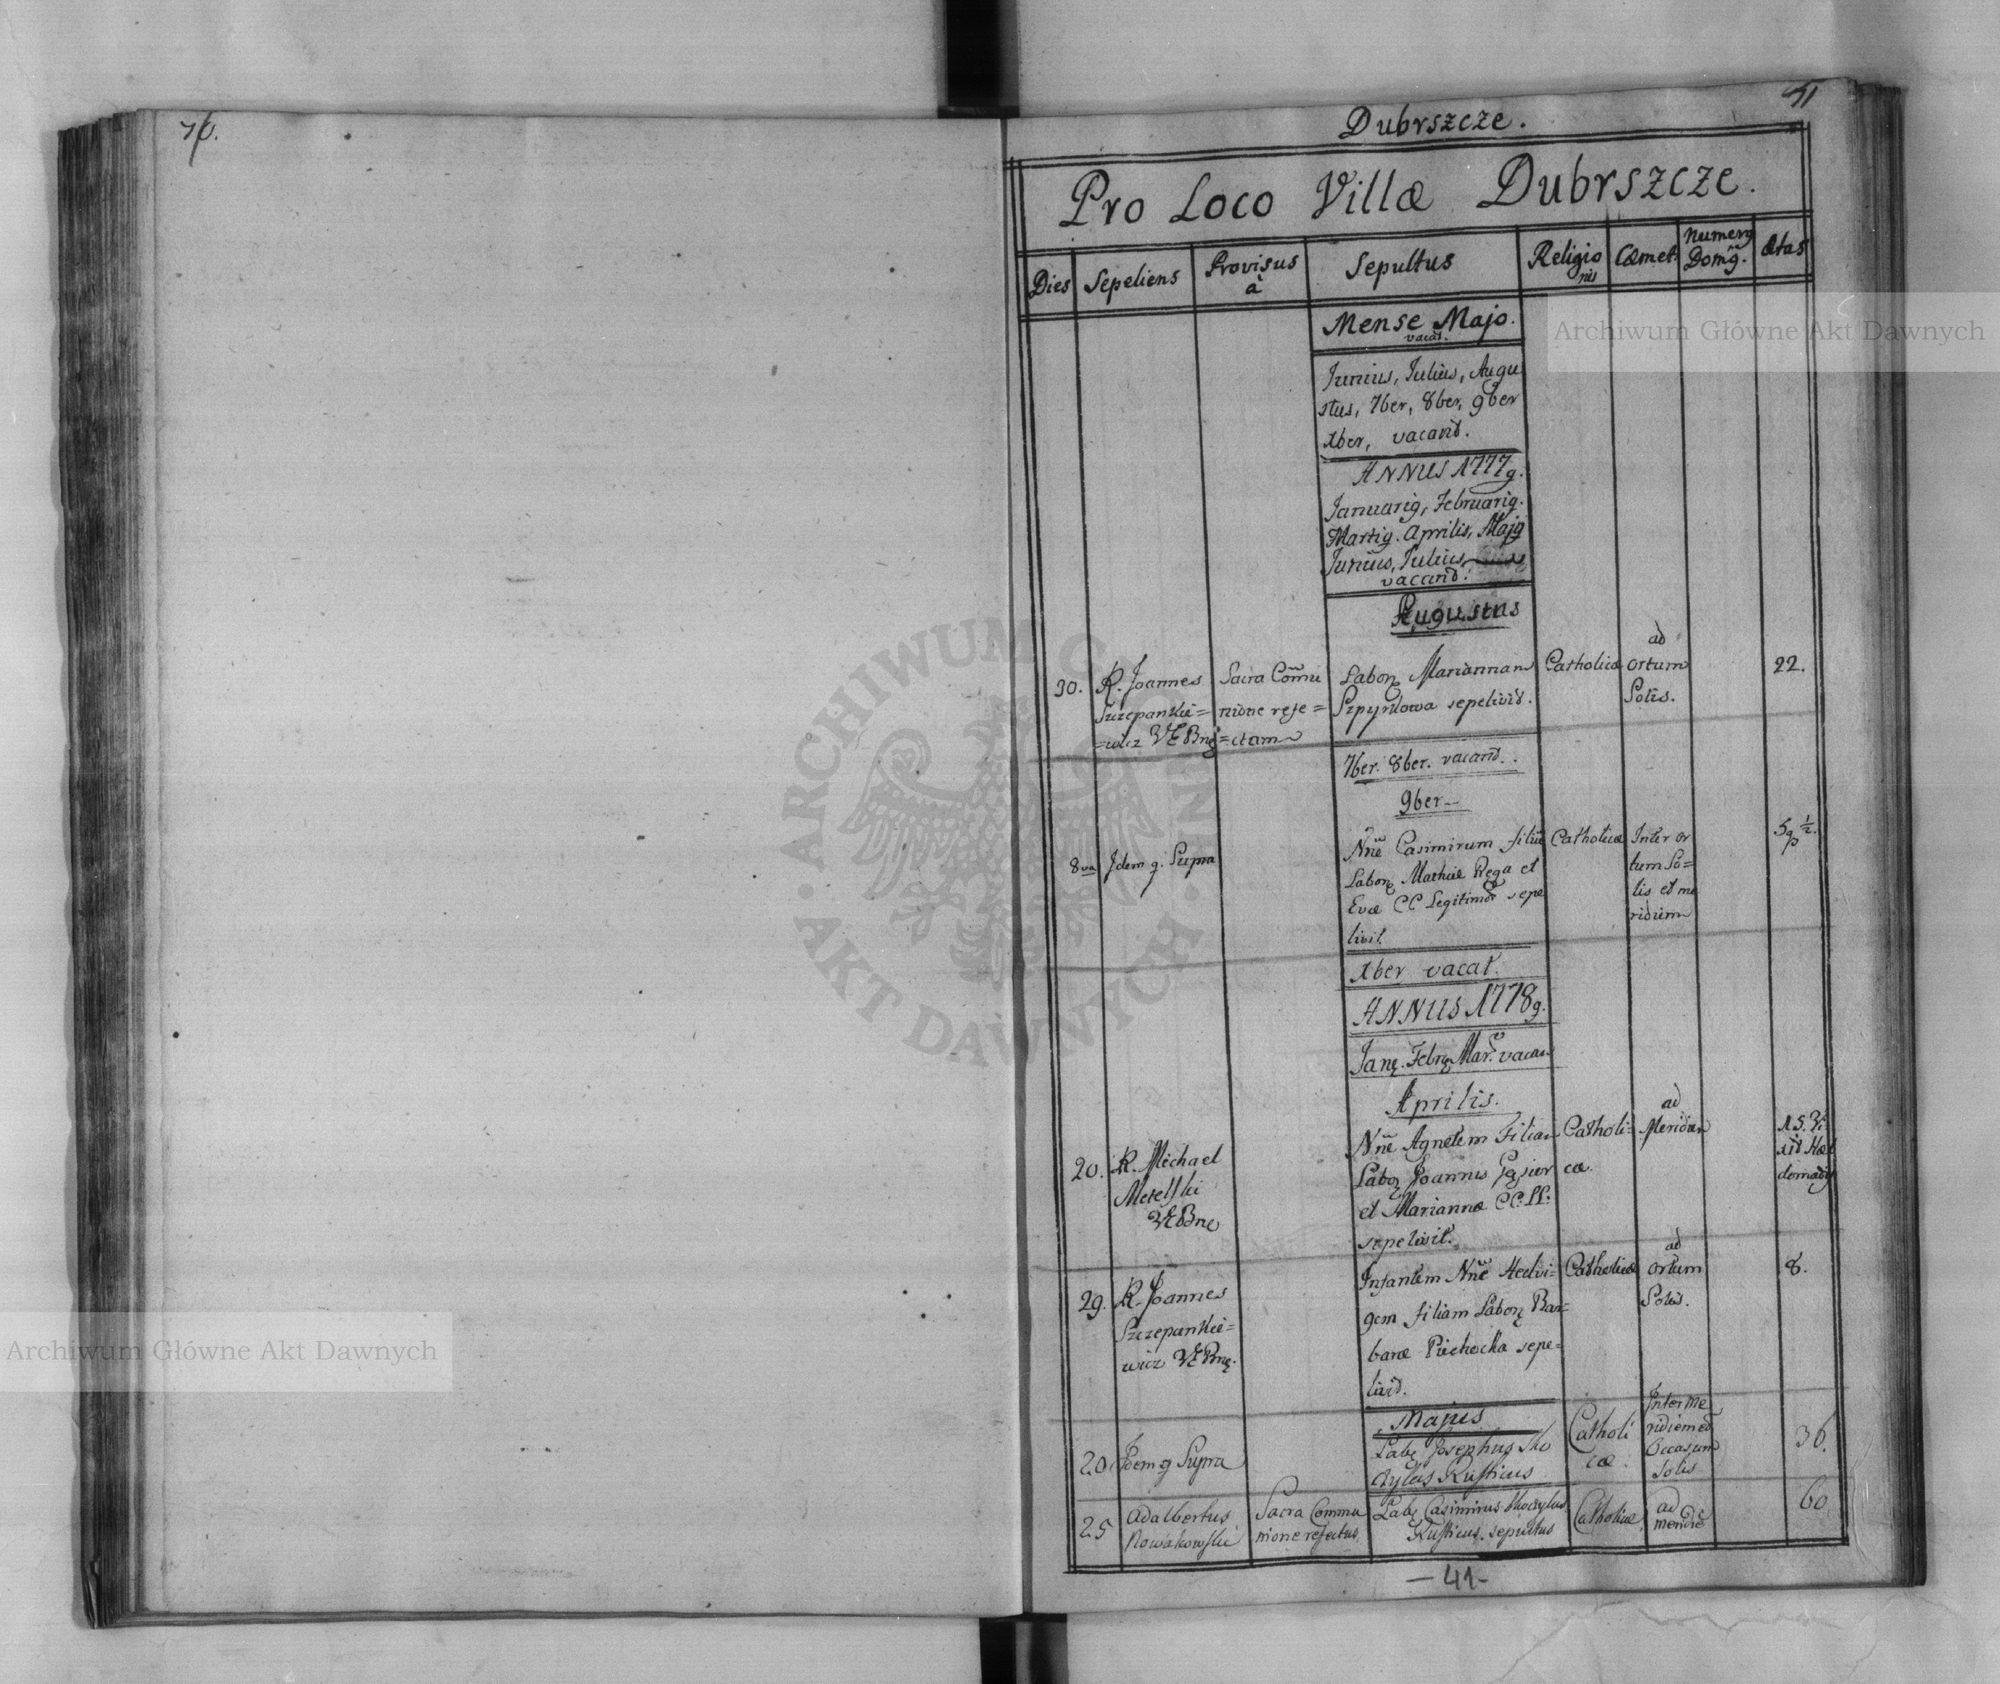 76.
41
Dubrszcze.
Pro Loco Villæ Dubrszcze.
Dies
Sepeliens
Provisus
à
Sepultus
Religio
nis
Cæmet.
Numerq
Domq.
Ætas
Mense Majo.
vacat.
Junius, Julius, Augu
stus, 7ber, 8ber, 9ber
Xber, vacant.
ANNUS 1777q.
Januariq, Februariq.
Martiq. Aprilis, Majq
Junius, Julius,
vacant.
Augustus
30.
R. Joannes
Szczepankie=
=wicz VEBnę
Sacra Com̃u
nione refe=
=ctam
Labor. Mariannam
Szpyrkowa sepelivit.
Catholicæ
ad
Ortum
Solis.
22.
7ber. 8ber. vacant.
9ber
8va
Idem q. Supra
Nñe Casimirum filiũ
Labor. Mathiæ Rega et
Evæ CC Legitimor sepe
livit.
Catholicæ
Inter or
tum So=
lis et me
ridiem
5q 1/2.
Xber vacat.
ANNUS 1778q.
Janę. Febrę Mar. vacan.
Aprilis.
20.
R. Michael
VEBnę
Nñe Agnetem Filiam
Labor Joannis
et Mariannæ CC.LL.
sepelivit.
Catholi=
cæ.
ad
Meridiem
15. Vi
xit Heb
domadis
29.
R. Joannes
Szczepankie=
wicz VEBnę.
Infantem Nñe Hedvi=
gem filiam Labor Bar=
baræ Piechocka sepe=
livit.
Catholicæ
ad
Ortum
Solis.
8.
Majus
20
Idem q Supra
Labę Josephus Sko
czylas Rusticus
Catholi
cæ.
Inter Me
ridiem et
Occasum
Solis
36.
25
Adalbertus
Nowakowski
Sacra Commu
nione refectus
Labę Casimirus Skoczylas
Rusticus. sepultus
Catholicæ
ad
meridiẽ
60
- 41 -
Archiwum Główne Akt Dawnych
Archiwum Główne Akt Dawnych
ARCHIWUM GŁÓWNE · AKT DAWNYCH ·